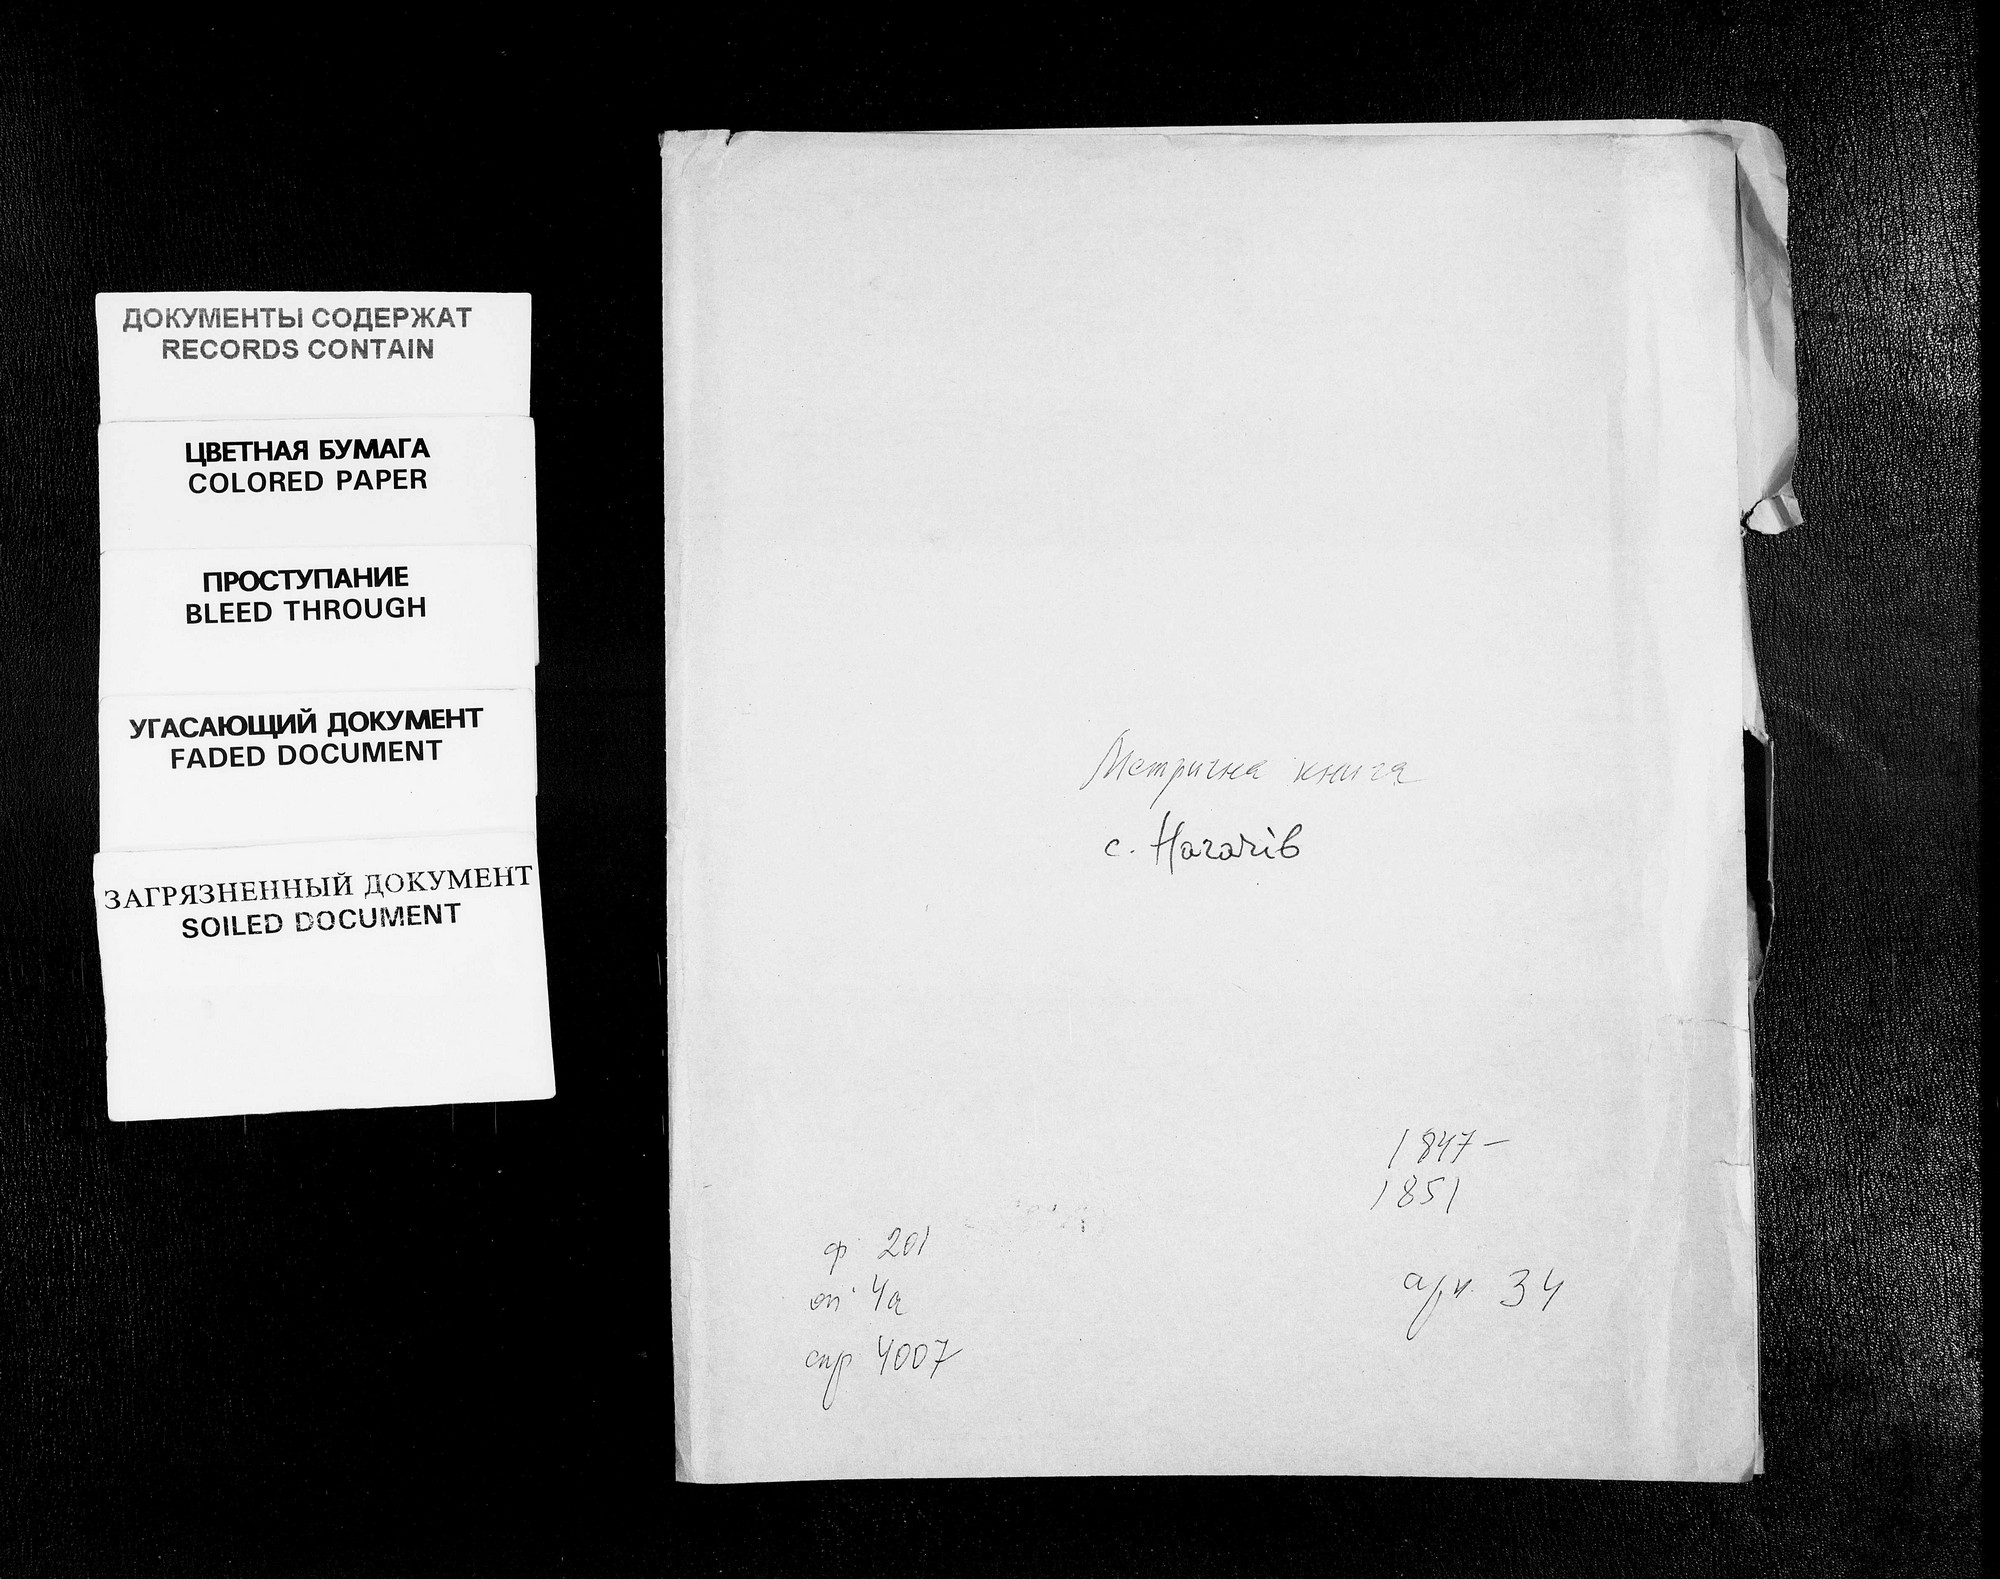 ДОКУМЕНТЫ СОДЕРЖАТ
RECORDS CONTAIN
ЦВЕТНАЯ БУМАГА
COLORED PAPER
ПРОСТУПАНИЕ
BLEED THROUGH
УГАСАЮЩИЙ ДОКУМЕНТ
FADED DOCUMENT
ЗАГРЯЗНЕННЫЙ ДОКУМЕНТ
SOILED DOCUMENT
Метрична книга
с. Нагачів
1847 –
1851
ф 201
оп 4а
спр 4007
арк. 34